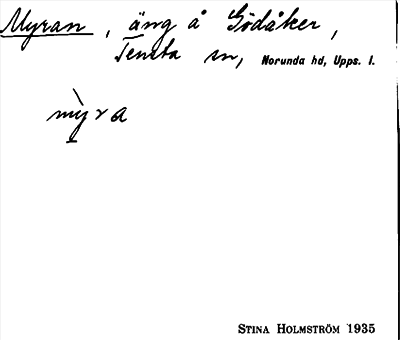 Myran, äng å Gödåker,
Tensta sn, Norunda hd, Upps. l.
mỳra
STINA HOLMSTRÖM 1935